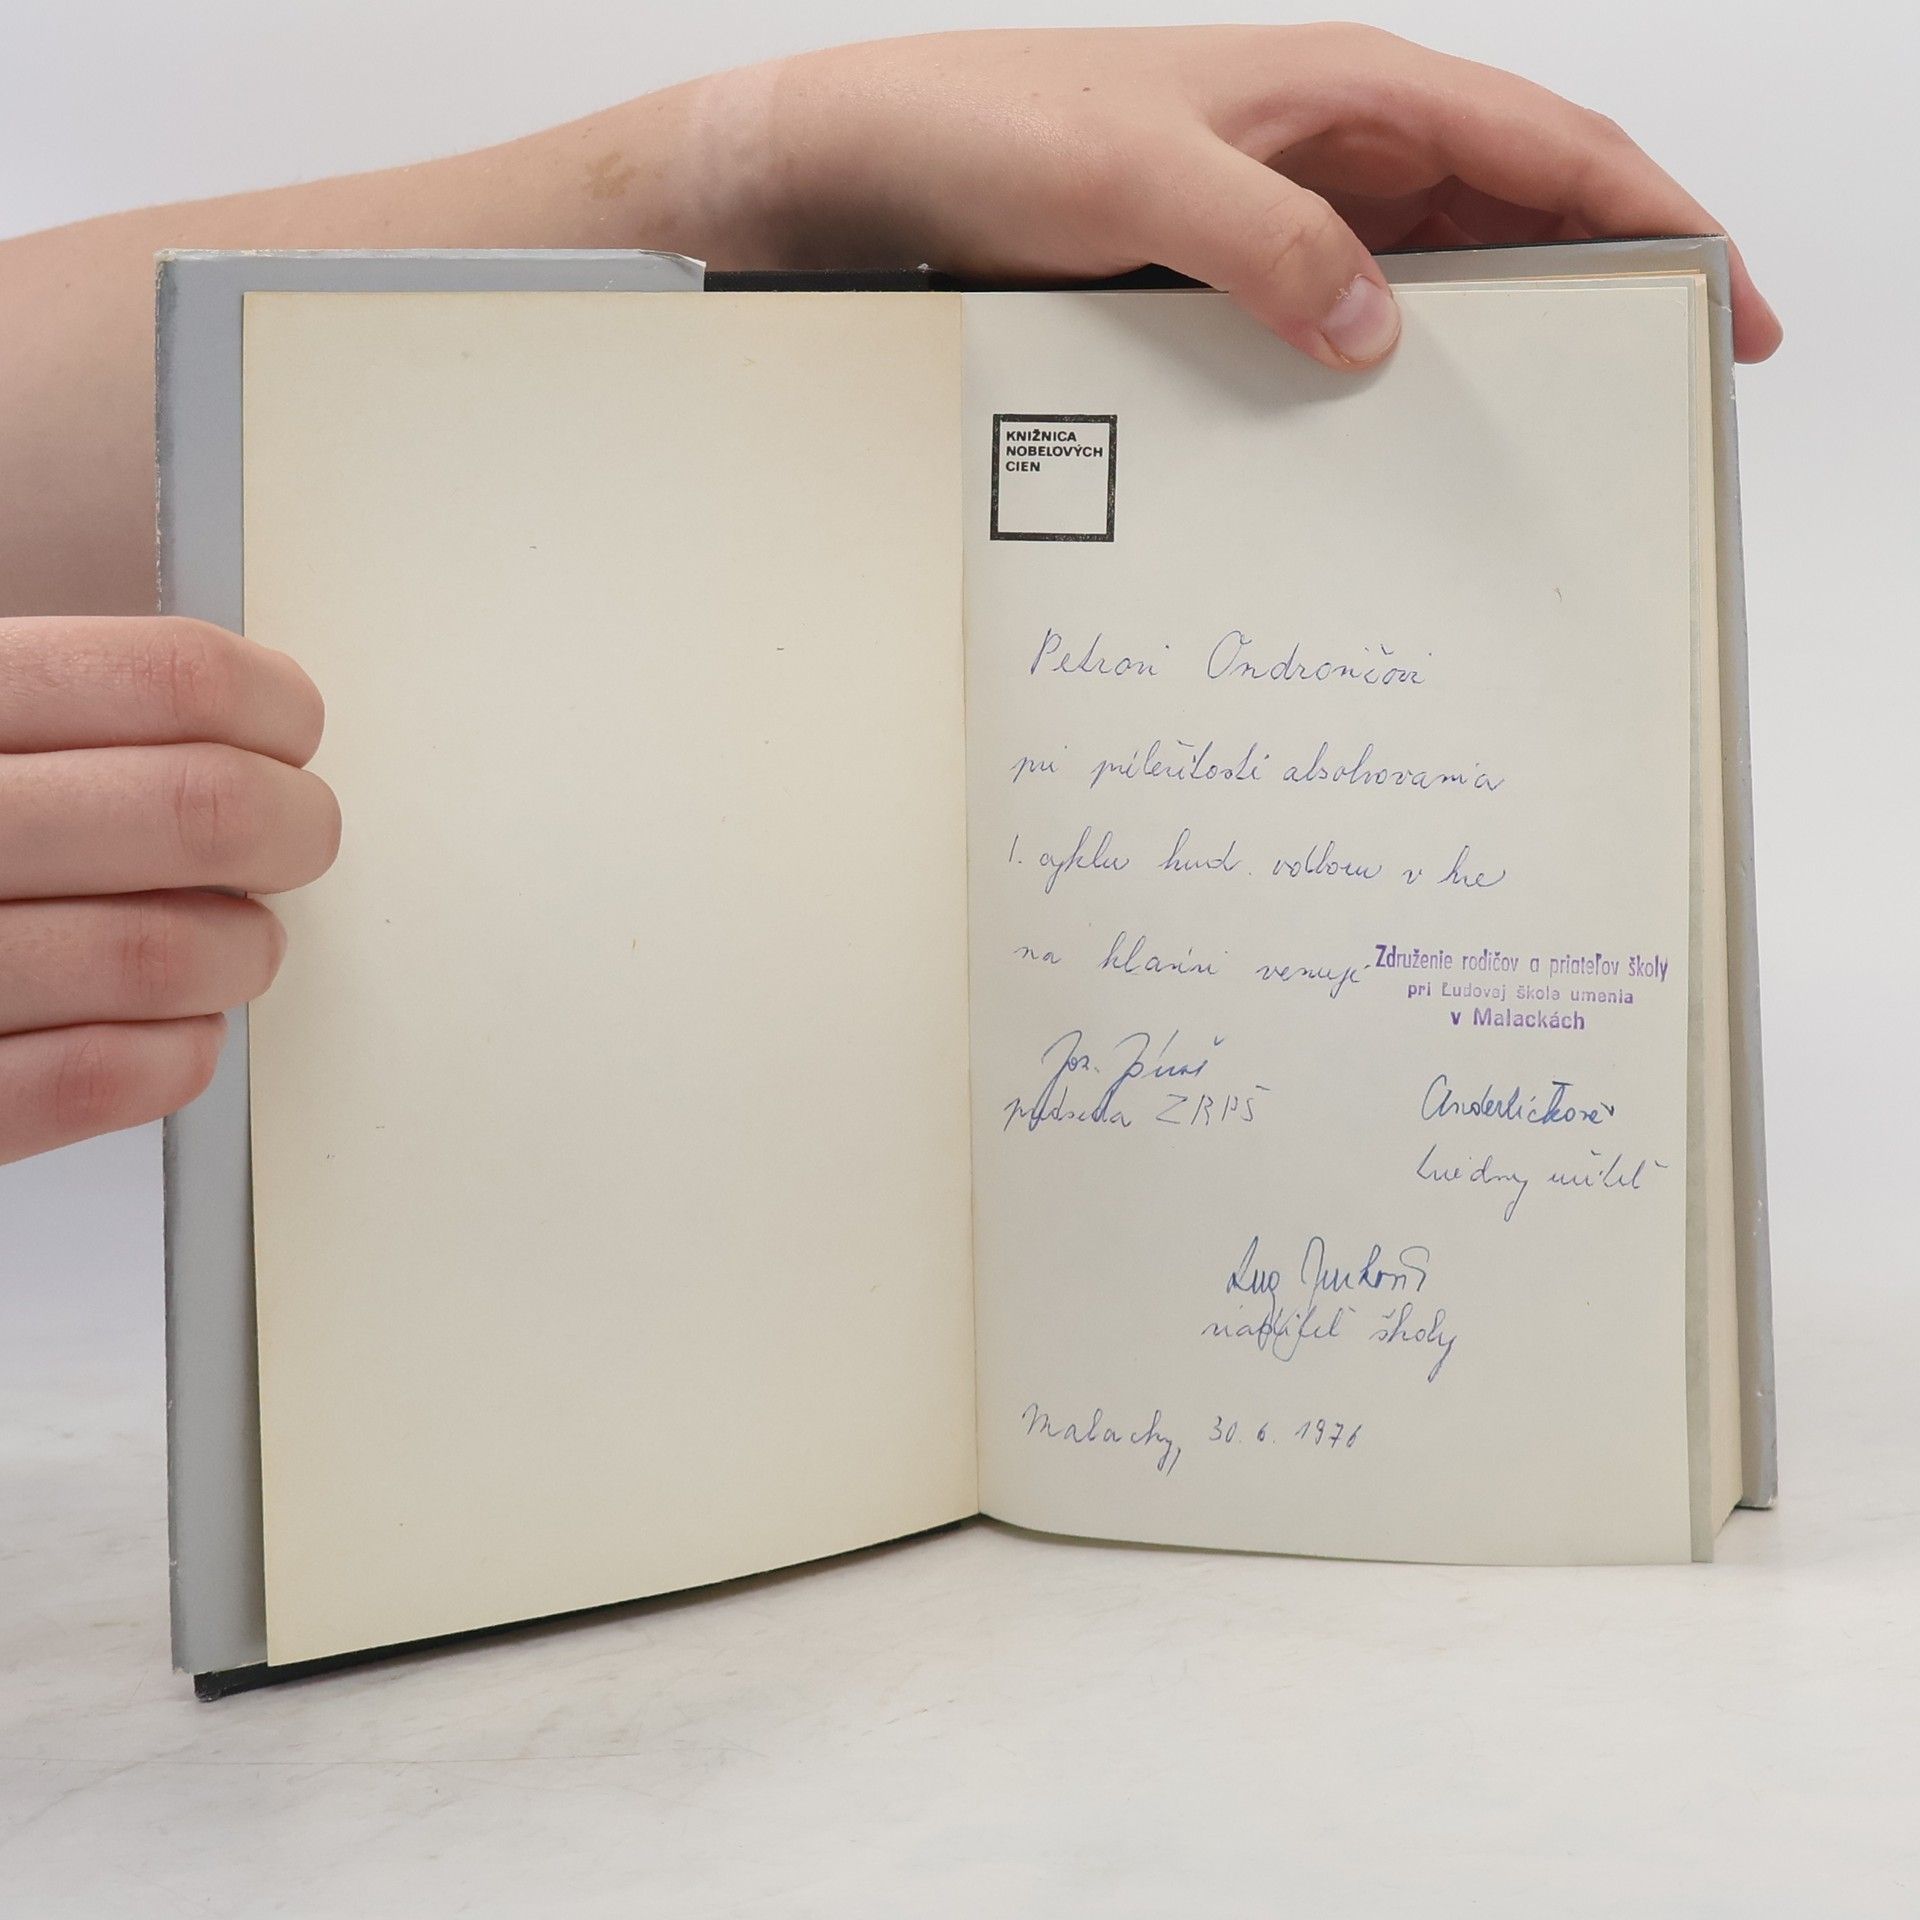 KNIŽNICA
NOBELOVÝCH
CIEN
Petrovi Ondrovičovi
pri príležitosti absolvovania
1. cyklu hud. odboru v hre
na klavíri venuje
Združenie rodičov a priateľov školy
pri Ľudovej škole umenia
v Malackách
Joz.
predseda ZRPŠ
Anderličková
triedny učiteľ
riaditeľ školy
Malacky, 30. 6. 1976